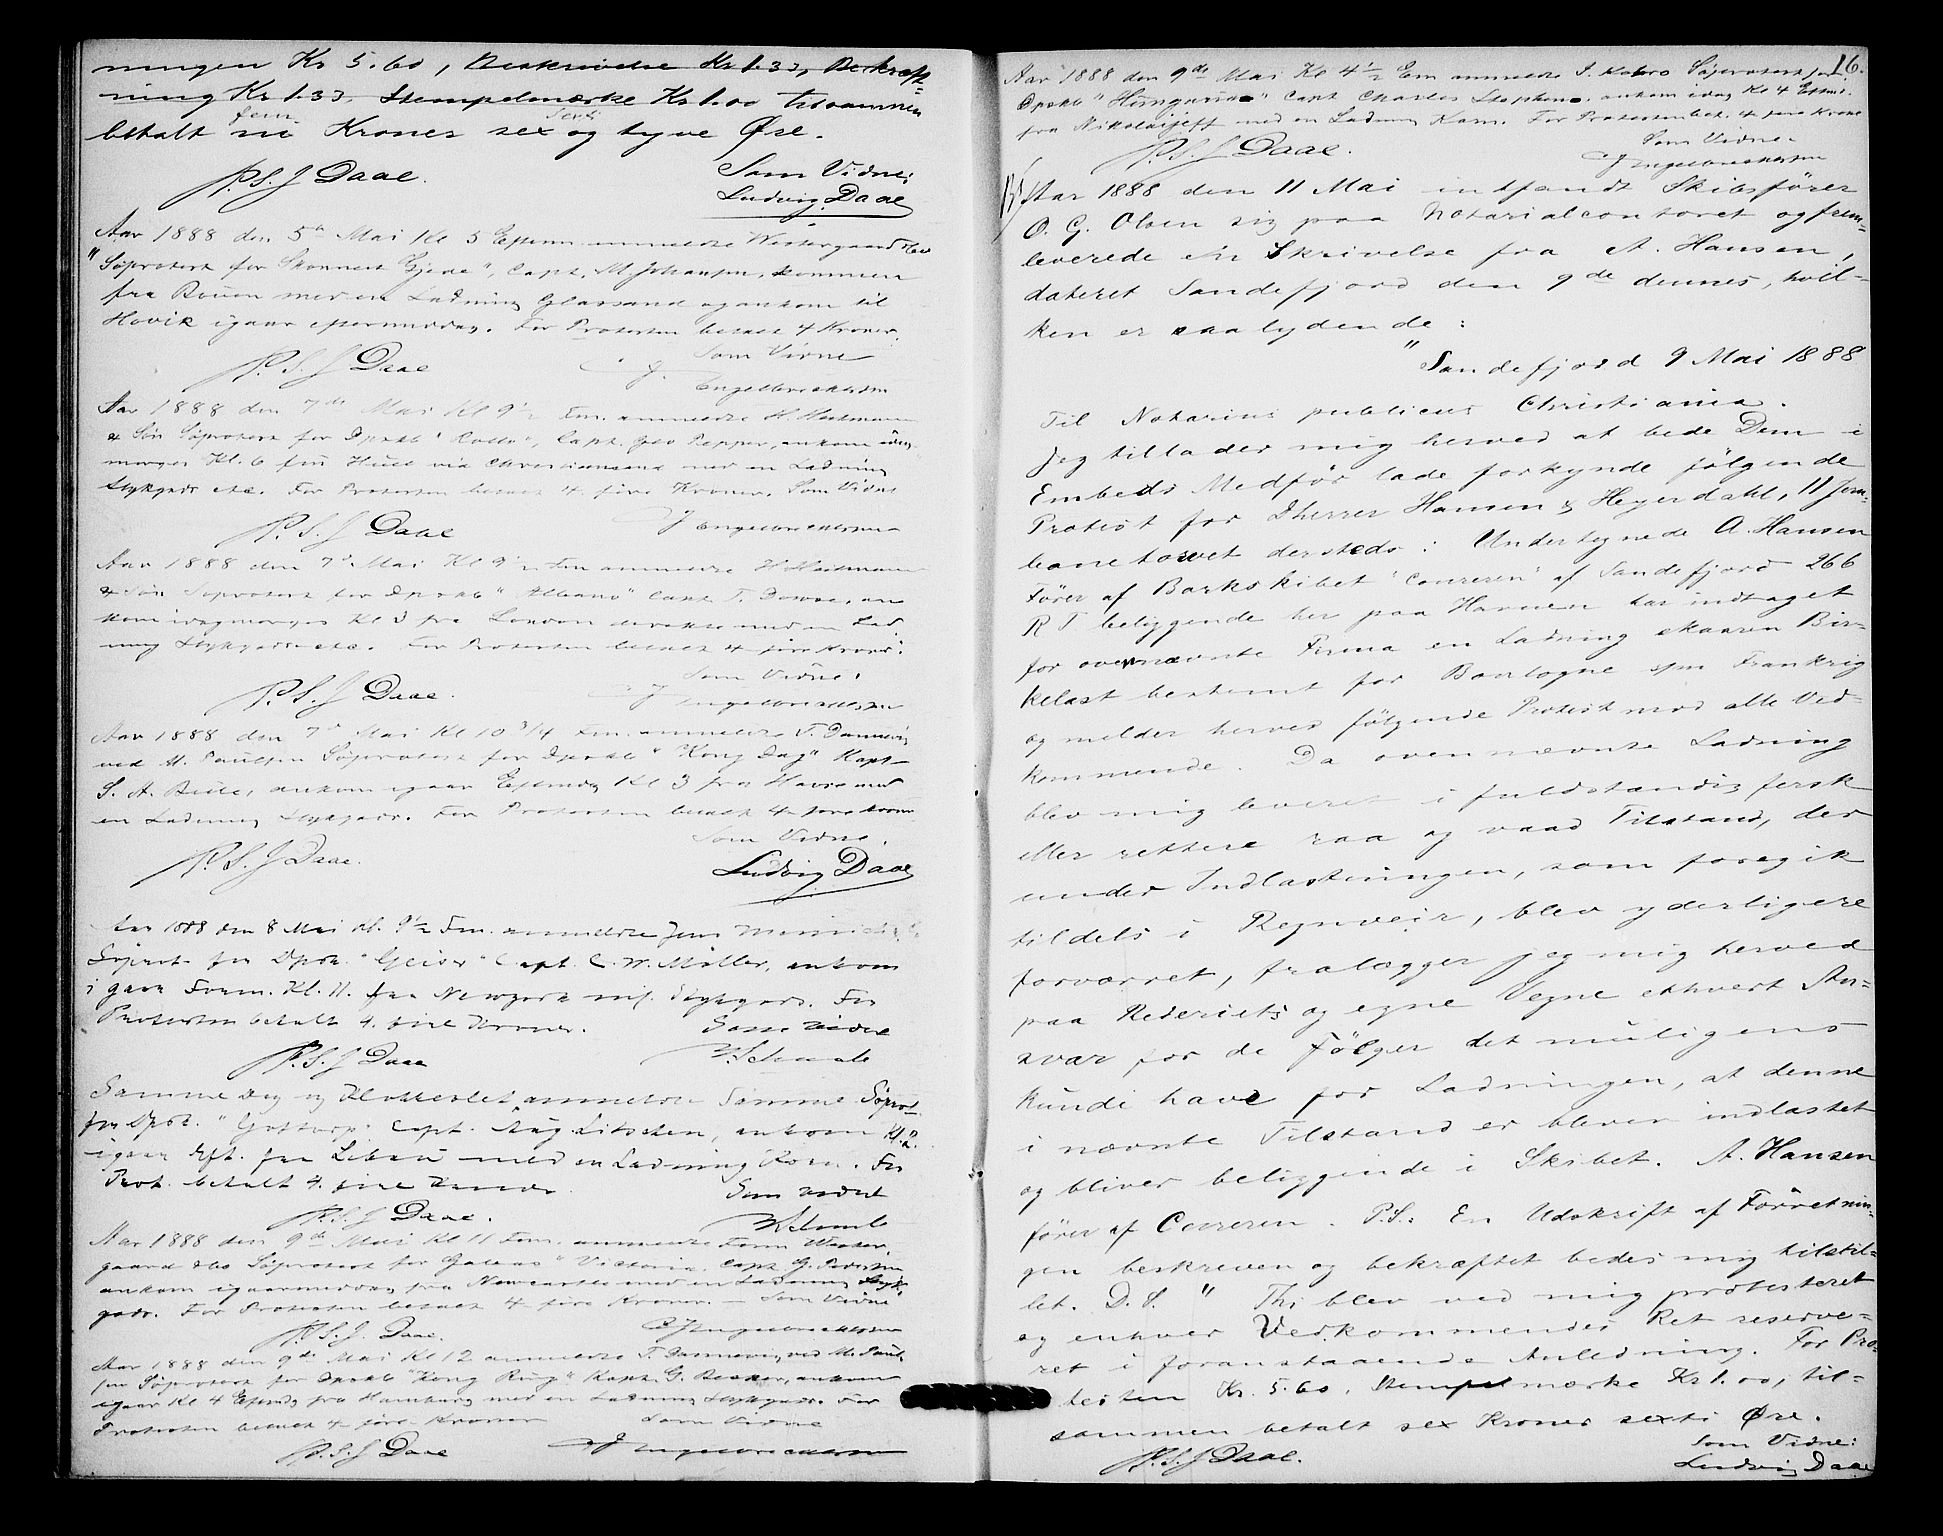 ningen Kr 5.60, Beskrivelse Kr 1.33, Bekræft-
ning Kr 1.33, Stempelmærke Kr 1.00 tilsammen
fem sexti
betalt ni Kroner sex og tyve Øre.
P.S.J Daae. Som Vidne:
Ludvig Daae
Aar 1888 den 5te Mai Kl 5 Efterm anmeldte Westergaard & Co
"Søprotest for Skonnert Gjeva", Capt. M Johansen, kommen
fra Rouen med en Ladning Glassand og ankom til
Hovik igaar eftermiddag. For Protesten betalt 4 Kroner.
Som Vidne
P.S.J Daae Engelbrechtsen
Aar 1888 den 7de Mai Kl 9½ Fm. anmeldte H. Heitmann
& Søn Søprotest for Dpskb "Rollo", Capt. Geo Pepper, ankom idag
morges Kl. 6 fra Hull via Christianssand med en Ladning
Stykgods etc. For Protesten betalt 4 fire Kroner. Som Vidne
P.S.J Daae Engelbrechtsen
Aar 1888 den 7de Mai Kl 9½ Fm anmeldte H Heitmann
& Søn Søprotest for Dpskb "Albano" Capt. T. Dowse, an
kom idag morges Kl 3 fra London direkte med en Lad
ning Stykgods etc. For Protesten betalt 4 fire Kroner.
Som Vidne:
P.S.J Daae. Engelbrechtsen
Aar 1888 den 7de Mai Kl 10 3/4 Fm. anmeldte T. Dannevig
ved M. Paulsen Søprotest for Dpskb "Kong Dag" Kapt
S. A. , ankom igaar Eftmdg Kl 3 fra Havre med
en Ladning Stykgods. For Protesten betalt 4 fire Kroner
Som Vidne.
P.S.J Daae. Ludvig Daae
Aar 1888 den 8 Mai Kl. 9½ Fm. anmeldte Jens Meinich & Co
Søprot. for Dpsk. "Geiser" Capt. C. W. Möller, ankom
i gaar Form. Kl. 11. fra Newyork m/ Stykgods. For
Protesten betalt 4. fire Kroner. Som Vidne
P.S.J Daae
Samme Dag og Klokkeslet anmeldte Samme Søprot.
for Dpsk. "Gottorp" Capt. Aug Litschen, ankom Kl. 2.
igaar Eft. fra Libau med en Ladning Korn. For
Prot. betalt 4. fire Kroner. Som Vidne
P.S.J Daae.
Aar 1888 den 9de Mai Kl 11 Fm. anmeldte Firm Wester-
gaard & Co Søprotest for Galeas "Victoria", Capt. G. Pedersen
ankom igaarmiddag fra Newcastle med en Ladning Styk-
gods. For Protesten betalt 4 fire Kroner. – Som Vidne
P.S.J. Daae. Engelbrechtsen
Aar 1888 den 9de Mai Kl 12 anmeldte T. Dannevig ved M. Paul-
sen Søprotest for Dpskb "Kong Ring" Kapt. G. Becker, ankom
igaar Kl 4 Eftmdg fra Hamburg med en Ladning Stykgods. For
Protesten betalt 4 fire Kroner Som Vidne
P.S.J Daae Engelbrechtsen
16.
Aar 1888 den 9de Mai Kl 4½ Em anmeldte S. Søprotest for
Dpskb "Hungaria" Capt Charles Stephens, ankom idag Kl 4 Eftmd.
fra Nikolaijeff med en Ladning Korn. For Protesten bet. 4 fire Kroner
Som Vidne
P.S.J Daae. Engelbrechtsen
Aar 1888 den 11 Mai indfandt Skibsfører
O. G. Olsen sig paa Notarialcontoret og frem-
leverede en Skrivelse fra A. Hansen,
dateret Sandefjord den 9de dennes, hvil-
ken er saalydende:
"Sandefjord 9 Mai 1888
Til Notarius publicus Christiania.
Jeg tillader mig herved at bede Dem i
Embeds Medfør lade forkynde følgende
Protest for Dherrer Hansen & Heyerdahl, 11 Jern-
banetorvet dersteds: Undertegnede A. Hansen
Fører af Barkskibet "Coureren" af Sandefjord 266
RT beliggende her paa Havnen har indtaget
for ovennævnte Firma en Ladning skaaren Bir-
kelast bestemt for Boulogne s/m Frankrig
og melder herved følgende Protest mod alle Ved-
kommende. Da ovennævnte Ladning
blev mig leveret i fuldstændig fersk
eller rettere raa og vaad Tilstand, der
under Indlastningen, som foregik
tildels i Regnveir, blev yderligere
forværret, fralægger jeg mig herved
paa Rederiets og egne Vegne ethvert An-
svar for de Følger det muligens
kunde have for Ladningen, at denne
i nævnte Tilstand er bleven indlastet
og bliver beliggende i Skibet. A. Hansen
fører af Coureren. P.S.: En Udskrift af Forretnin-
gen beskreven og bekræftet bedes mig tilstil-
let. D. S." Thi blev ved mig protesteret
og enhver Vedkommendes Ret reserve-
ret i foranstaaende Anledning. For Pro-
testen Kr. 5.60, Stempelmærke Kr 1.00, til-
sammen betalt sex Kroner sexti Øre.
Som Vidne:
P.S.J Daae. Ludvig Daae